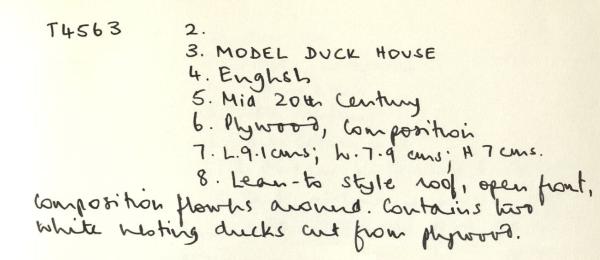 T4563 2.
3. MODEL DUCK HOUSE
4. English
5. Mid 20th Century
6. Plywood, Composition
7. L.9.1cms; W.7.9 cms; H 7 cms.
8. Lean-to style roof, open front,
composition flowers around. Contains two
white nesting ducks cut from plywood.